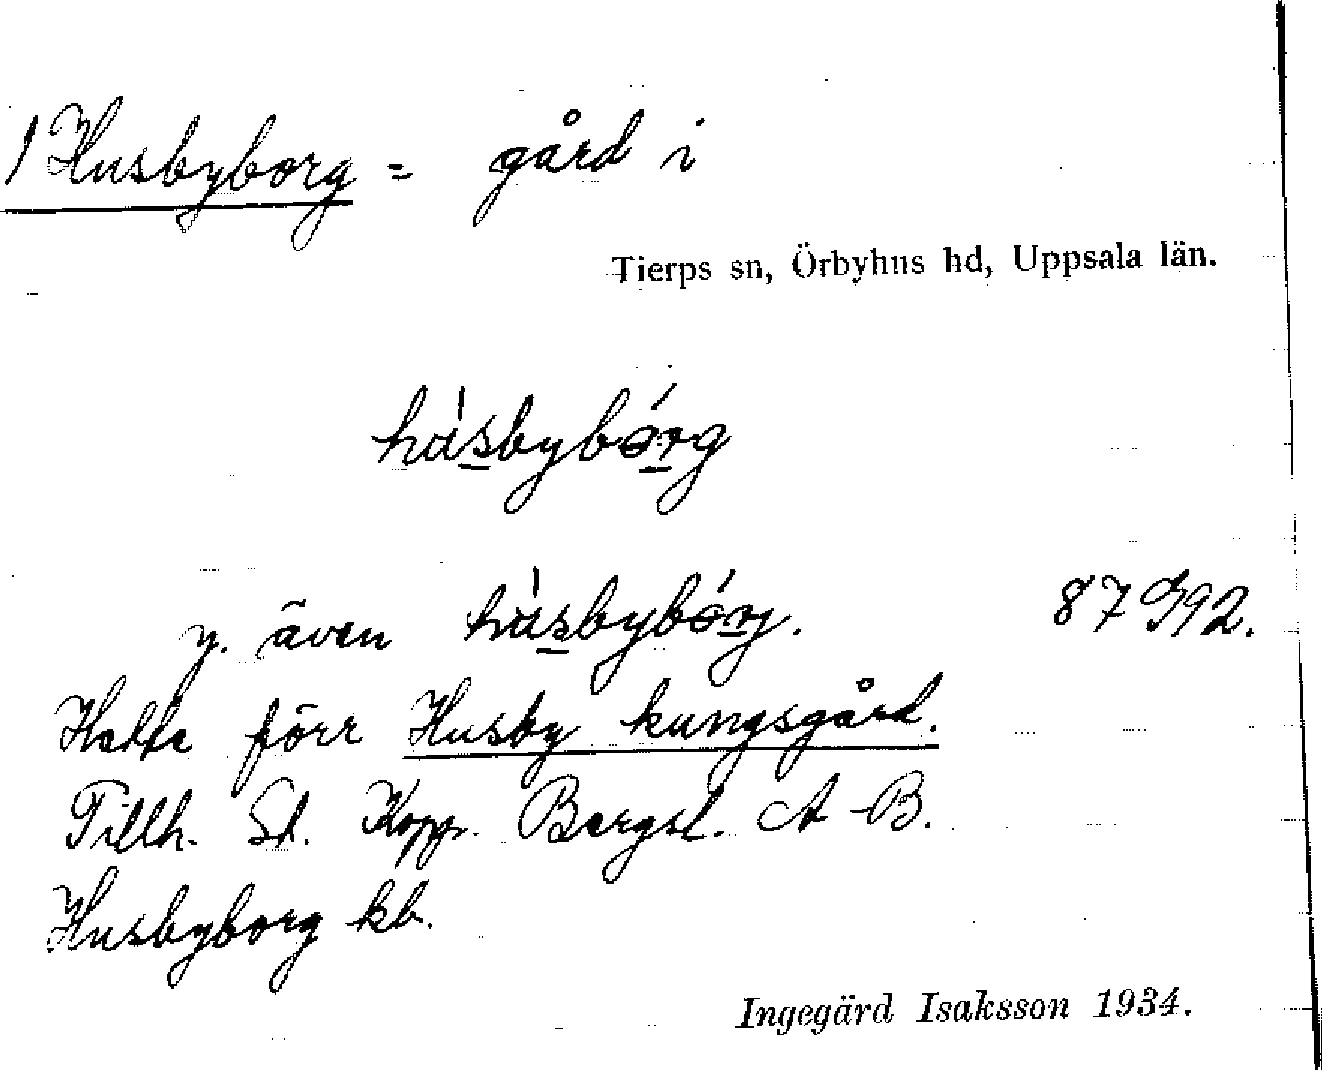 1 Husbyborg = gård i
Tierps sn, Örbyhus hd, Uppsala län.
húsbybórg
y. även húsbybórj. 87 G92.
Hette förr Husby kungsgård.
Tillh. St. Kopp. Bergsl. A-B.
Husbyborg kb.
Ingegärd Isaksson 1934.